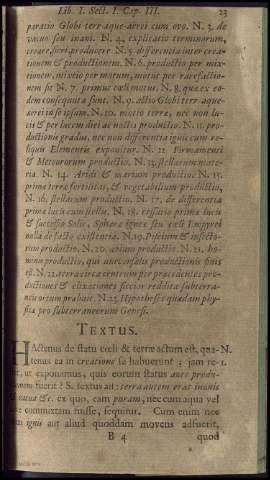 Lib. I. Sect. I. Cap. III. 23
paratio Globi terr-aque-aerei cum ovo. N. 3. de
vacuo seu inani. N. 4. explicatio terminorum,
creare, fieri, producere N. 5. differentia inter crea-
tionem & productionem. N. 6. productio per mix-
tionem, mixtio per motum, motus per rarefactio-
nem fit N. 7. primus cœli motus. N. 8. quæ ex eo-
dem consequuta sunt. N. 9. actio Globi terr-aque-
aerei in ipsum. N. 10. motio terræ, nec non lu-
cis & per lucem diei ac noctis productio. N. 11. pro-
ductionis gradus, nec non differentia ignis cum re-
liquis Elementis exponitur. N. 12. Firmamenti
& Meteororum productio. N. 13. stellarum mate-
ria. N. 14. Aridi & marium productio. N. 15.
prima terræ fertilitas, & vegetabilium productio,
N. 16. stellarum productio. N. 17. de differentia
primæ lucis cum stellis. N. 18. cessatio primæ lucis
& successio Solis, Sphæræ igneæ seu cœli Empyrei
nulla de facto existentia. N. 19. Piscium & insecto-
rum productio. N. 20. avium productio. N. 21. ho-
minis productio, qui universalis productionis finis
est. N. 22. terra circa centrum per præcedentes pro-
ductiones & elixationes siccior reddita subterra-
neis ortum præbuit. N. 23. Hypotheses quædam phy-
sicæ pro subterraneorum Genesi.
TEXTUS.
HActenus de statu cœli & terræ actum est, qua- N.
tenus ea in creatione se habuerunt; jam re- 1.
stat, ut exponamus, quis eorum status ante produ-
ctionem fuerit? S. textus ait: terra autem erat inanis
& vacua &c. ex quo, eam puram, nec cum aqua vel
commixtam fuisse, sequitur. Cum enim nec
ignis aut aliud quoddam movens adfuerit,
B 4 quod